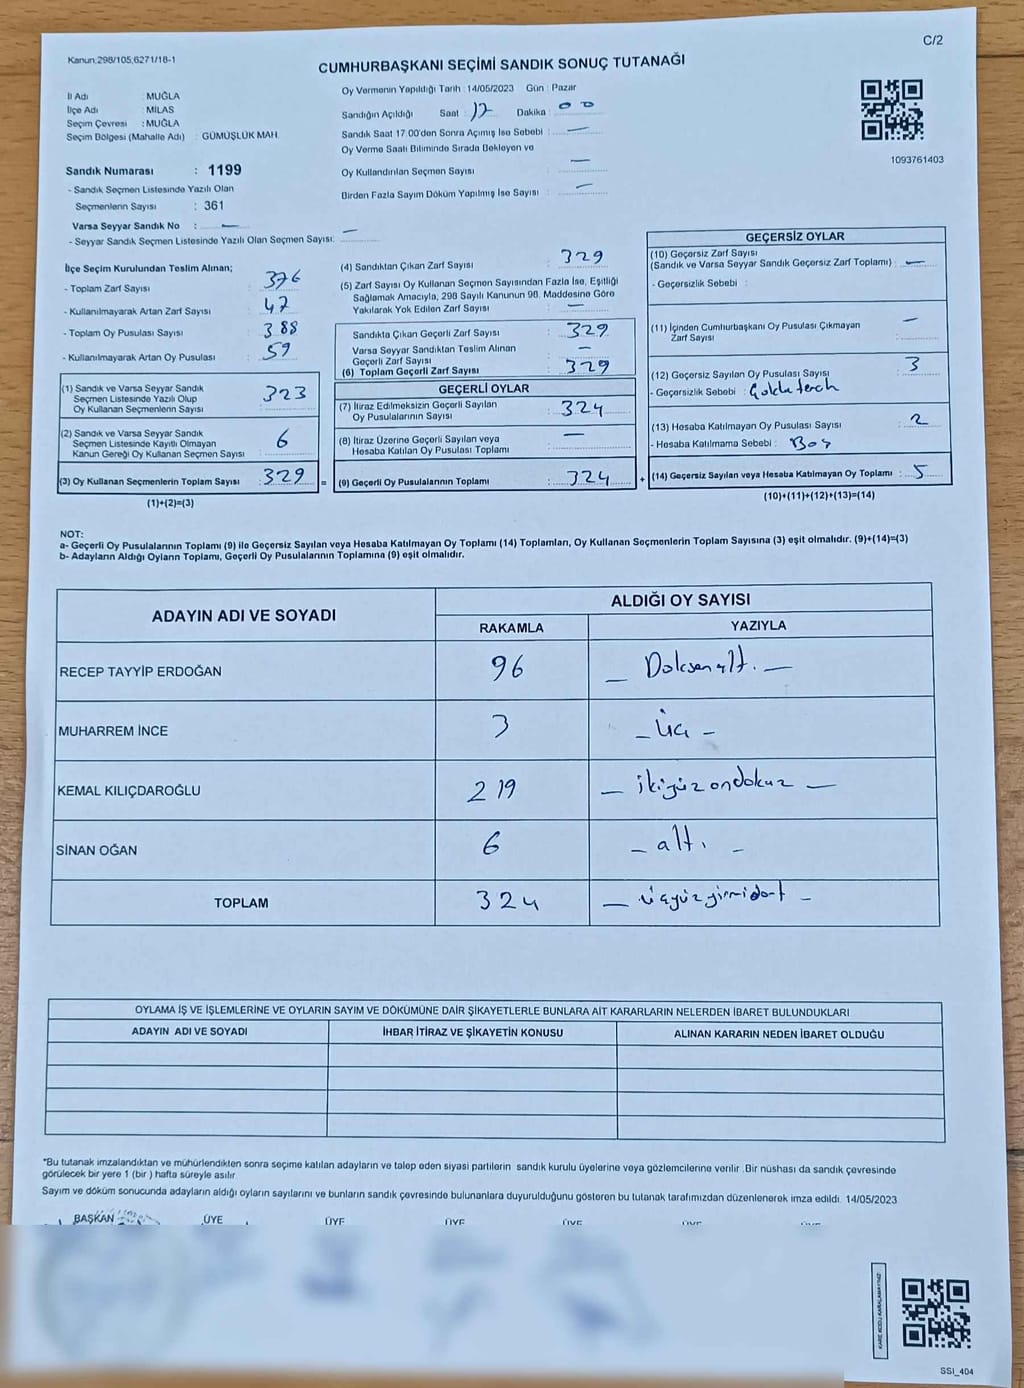 C/2
Kanun:298/105,6271/18-1
CUMHURBAŞKANI SEÇİMİ SANDIK SONUÇ TUTANAĞI
İl Adı : MUĞLA
İlçe Adı : MİLAS
Seçim Çevresi : MUĞLA
Seçim Bölgesi (Mahalle Adı) : GÜMÜŞLÜK MAH.
Sandık Numarası : 1199
- Sandık Seçmen Listesinde Yazılı Olan
Seçmenlerin Sayısı : 361
Varsa Seyyar Sandık No : —
- Seyyar Sandık Seçmen Listesinde Yazılı Olan Seçmen Sayısı: —
Oy Vermenin Yapıldığı Tarih : 14/05/2023 Gün : Pazar
Sandığın Açıldığı Saat : 17 Dakika : 00
Sandık Saat 17.00'den Sonra Açımış İse Sebebi : —
Oy Verme Saati Bitiminde Sırada Bekleyen ve
Oy Kullandırılan Seçmen Sayısı : —
Birden Fazla Sayım Döküm Yapılmış İse Sayısı : —
1093761403
İlçe Seçim Kurulundan Teslim Alınan;
- Toplam Zarf Sayısı : 376
- Kullanılmayarak Artan Zarf Sayısı : 47
- Toplam Oy Pusulası Sayısı : 388
- Kullanılmayarak Artan Oy Pusulası : 59
(1) Sandık ve Varsa Seyyar Sandık
Seçmen Listesinde Yazılı Olup
Oy Kullanan Seçmenlerin Sayısı : 323
(2) Sandık ve Varsa Seyyar Sandık
Seçmen Listesinde Kayıtlı Olmayan
Kanun Gereği Oy Kullanan Seçmen Sayısı : 6
(3) Oy Kullanan Seçmenlerin Toplam Sayısı : 329 =
(1)+(2)=(3)
(4) Sandıktan Çıkan Zarf Sayısı : 329
(5) Zarf Sayısı Oy Kullanan Seçmen Sayısından Fazla İse, Eşitliği
Sağlamak Amacıyla, 298 Sayılı Kanunun 98. Maddesine Göre
Yakılarak Yok Edilen Zarf Sayısı : —
Sandıkta Çıkan Geçerli Zarf Sayısı : 329
Varsa Seyyar Sandıktan Teslim Alınan
Geçerli Zarf Sayısı : —
(6) Toplam Geçerli Zarf Sayısı : 329
GEÇERLİ OYLAR
(7) İtiraz Edilmeksizin Geçerli Sayılan
Oy Pusulalarının Sayısı : 324
(8) İtiraz Üzerine Geçerli Sayılan veya
Hesaba Katılan Oy Pusulası Toplamı : —
(9) Geçerli Oy Pusulalarının Toplamı : 324 +
GEÇERSİZ OYLAR
(10) Geçersiz Zarf Sayısı
(Sandık ve Varsa Seyyar Sandık Geçersiz Zarf Toplamı) : —
- Geçersizlik Sebebi :
(11) İçinden Cumhurbaşkanı Oy Pusulası Çıkmayan
Zarf Sayısı : —
(12) Geçersiz Sayılan Oy Pusulası Sayısı : 3
- Geçersizlik Sebebi : Çoklu tercih
(13) Hesaba Katılmayan Oy Pusulası Sayısı : 2
- Hesaba Katılmama Sebebi : Boş
(14) Geçersiz Sayılan veya Hesaba Katılmayan Oy Toplamı : 5
(10)+(11)+(12)+(13)=(14)
NOT:
a- Geçerli Oy Pusulalarının Toplamı (9) ile Geçersiz Sayılan veya Hesaba Katılmayan Oy Toplamı (14) Toplamları, Oy Kullanan Seçmenlerin Toplam Sayısına (3) eşit olmalıdır. (9)+(14)=(3)
b- Adayların Aldığı Oyların Toplamı, Geçerli Oy Pusulalarının Toplamına (9) eşit olmalıdır.
ADAYIN ADI VE SOYADI ALDIĞI OY SAYISI
RAKAMLA YAZIYLA
RECEP TAYYİP ERDOĞAN 96 — Doksanaltı —
MUHARREM İNCE 3 — Üç —
KEMAL KILIÇDAROĞLU 219 — ikiyüzondokuz —
SİNAN OĞAN 6 — altı —
TOPLAM 324 — üçyüzyirmidört —
OYLAMA İŞ VE İŞLEMLERİNE VE OYLARIN SAYIM VE DÖKÜMÜNE DAİR ŞİKAYETLERLE BUNLARA AİT KARARLARIN NELERDEN İBARET BULUNDUKLARI
ADAYIN ADI VE SOYADI İHBAR İTİRAZ VE ŞİKAYETİN KONUSU ALINAN KARARIN NEDEN İBARET OLDUĞU
*Bu tutanak imzalandıktan ve mühürlendikten sonra seçime katılan adayların ve talep eden siyasi partilerin sandık kurulu üyelerine veya gözlemcilerine verilir. Bir nüshası da sandık çevresinde
görülecek bir yere 1 (bir ) hafta süreyle asılır.
Sayım ve döküm sonucunda adayların aldığı oyların sayılarını ve bunların sandık çevresinde bulunanlara duyurulduğunu gösteren bu tutanak tarafımızdan düzenlenerek imza edildi. 14/05/2023
BAŞKAN ÜYE ÜYE ÜYE ÜYE ÜYE ÜYE
KARE KODU KARALAMAYINIZ
SSI_404